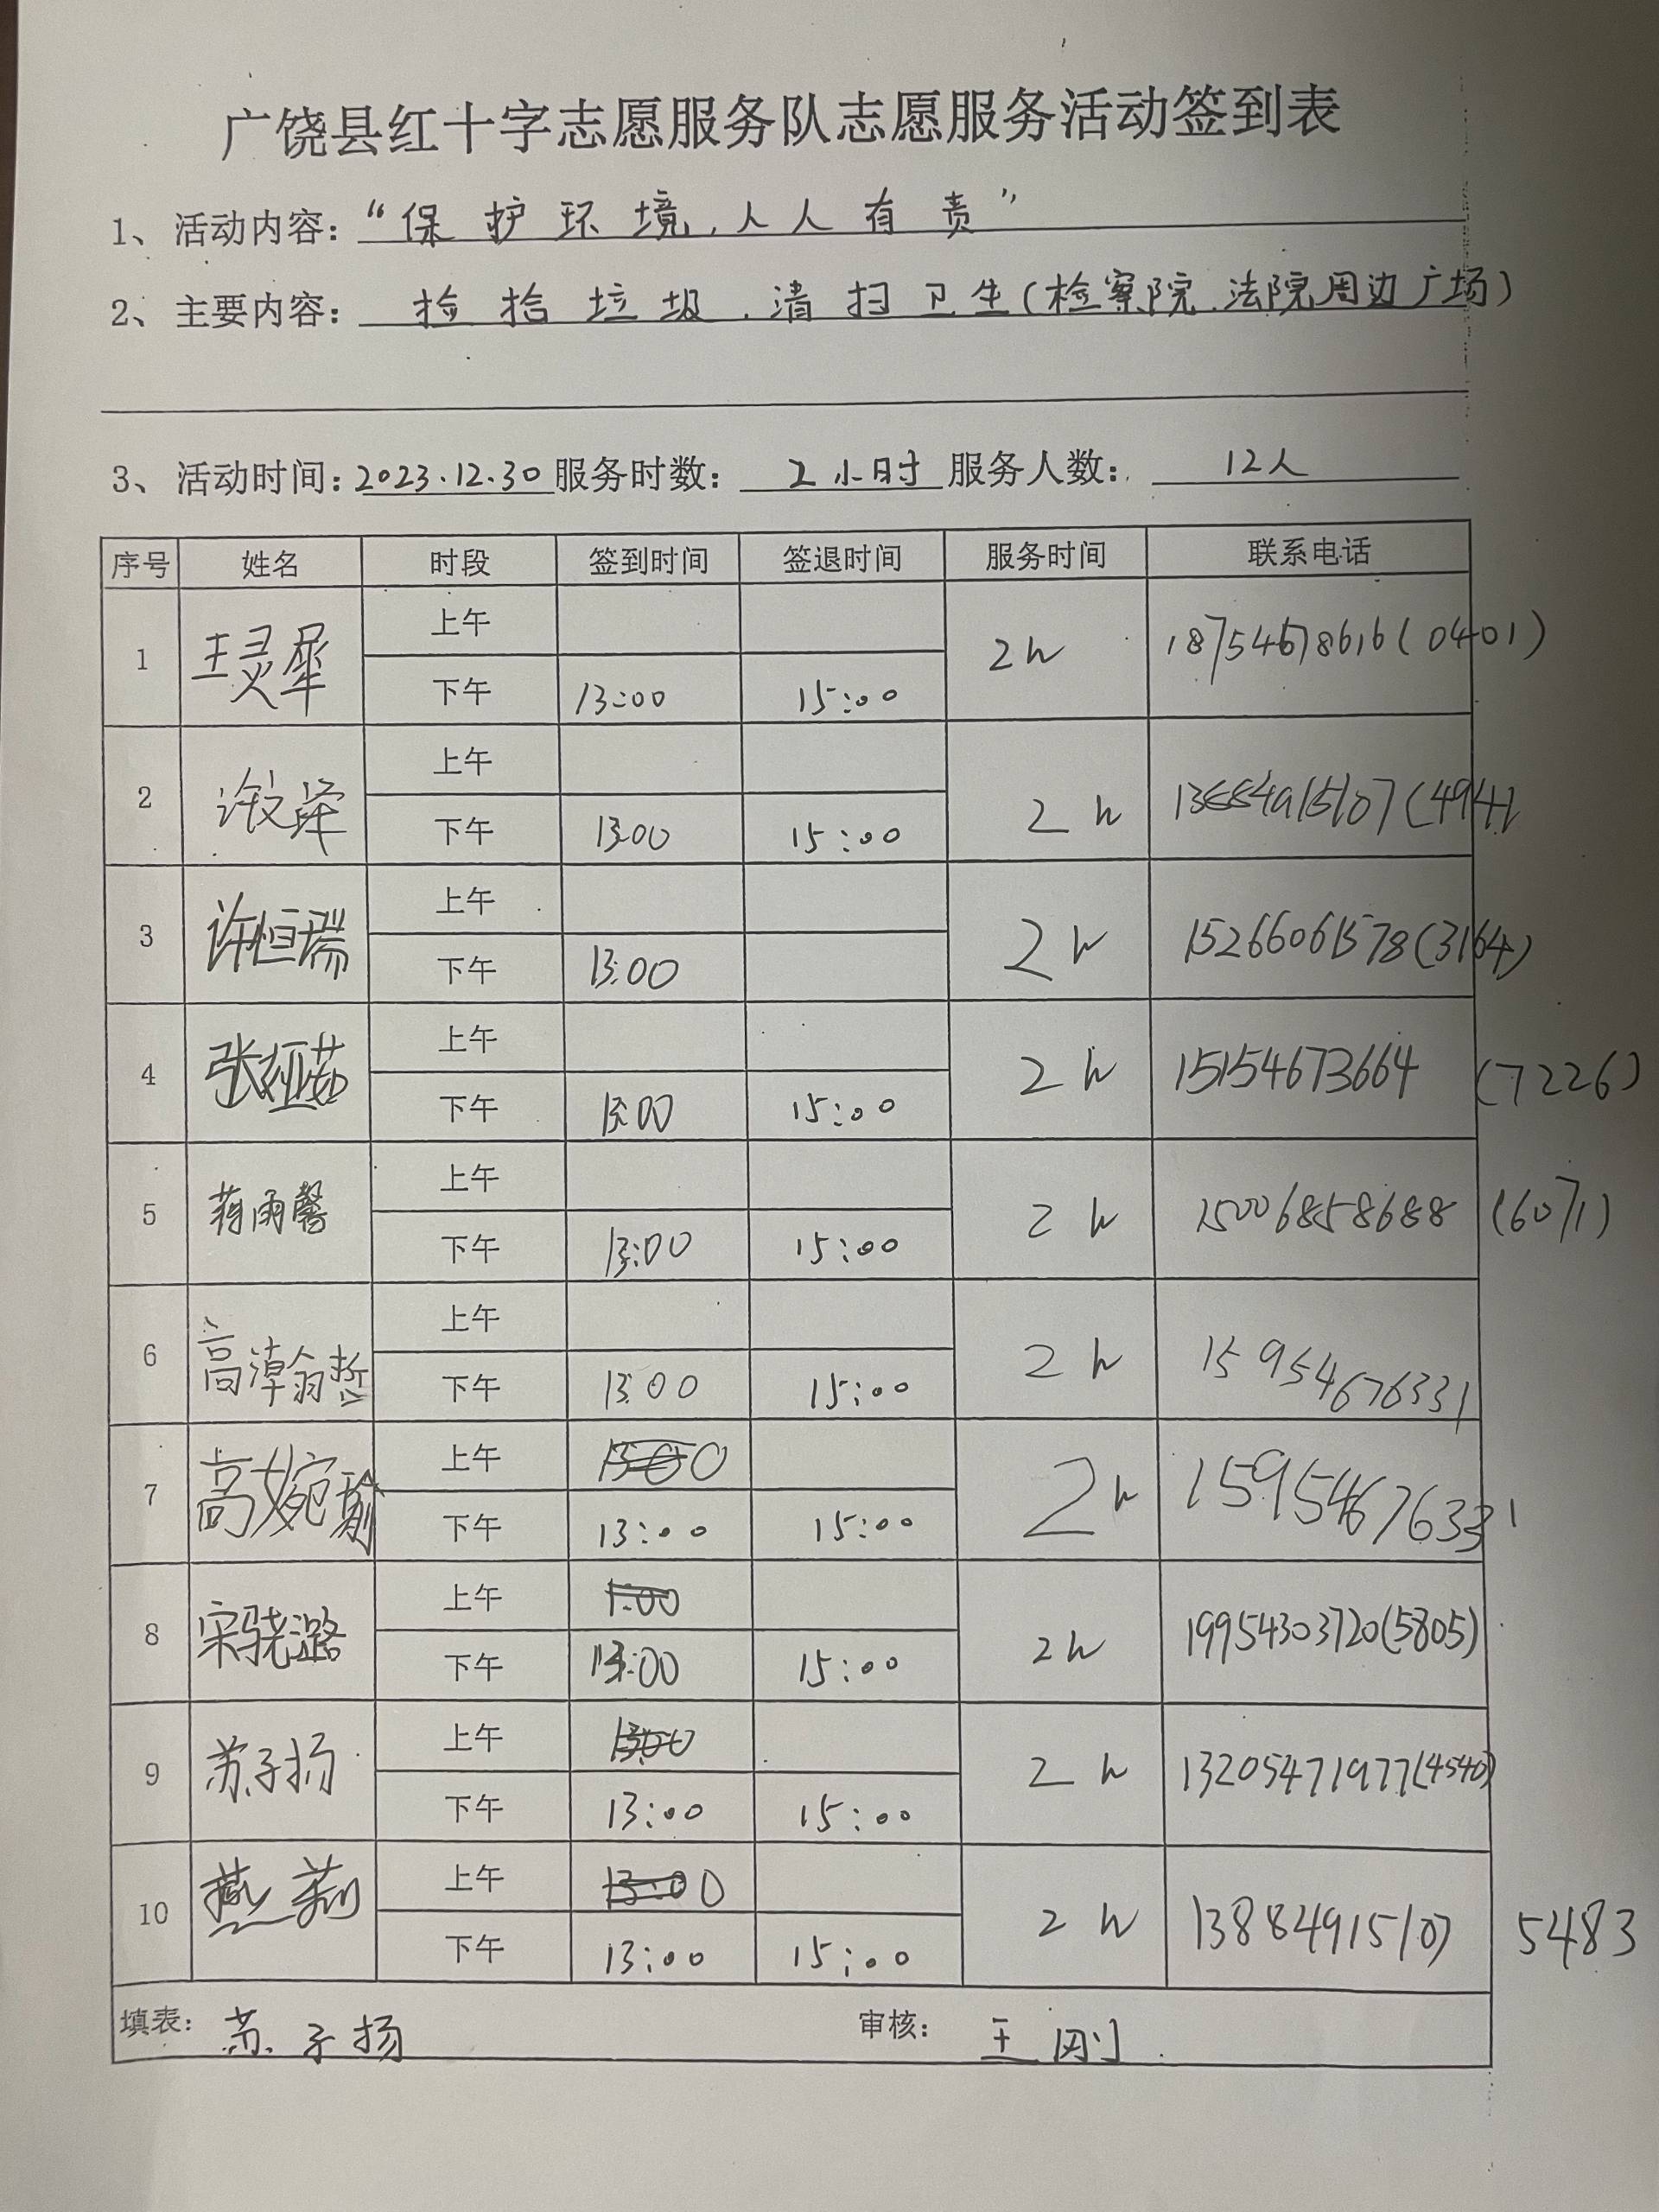 广饶县红十字志愿服务队志愿服务活动签到表
1、活动内容：“保护环境，人人有责”
2、主要内容：捡拾垃圾、清扫卫生（检察院、法院周边广场）
3、活动时间：2023.12.30 服务时数：2小时 服务人数：12人
序号 姓名 时段 签到时间 签退时间 服务时间 联系电话
1 王灵犀 上午 2h 18754678616(0401)
下午 13:00 15:00
2 许文泽 上午 2h
下午 13:00 15:00
3 许恒瑞 上午 2h 15266061578(3164)
下午 13:00
4 张娅茹 上午 2h 15154673664 (7226)
下午 13:00 15:00
5 蒋雨馨 上午 2h 15006858688 (6071)
下午 13:00 15:00
6 高漳翰哲 上午 2h 15954676331
下午 13:00 15:00
7 高婉瑜 上午 2h 15954676331
下午 13:00 15:00
8 宋骁潞 上午 1:00 2h 19954303720(5805)
下午 13:00 15:00
9 苏子扬 上午 13:00 2h 13205471977(4540)
下午 13:00 15:00
10 燕莉 上午 13:00 2h 13884915107 5483
下午 13:00 15:00
填表：苏子扬 审核：王刚